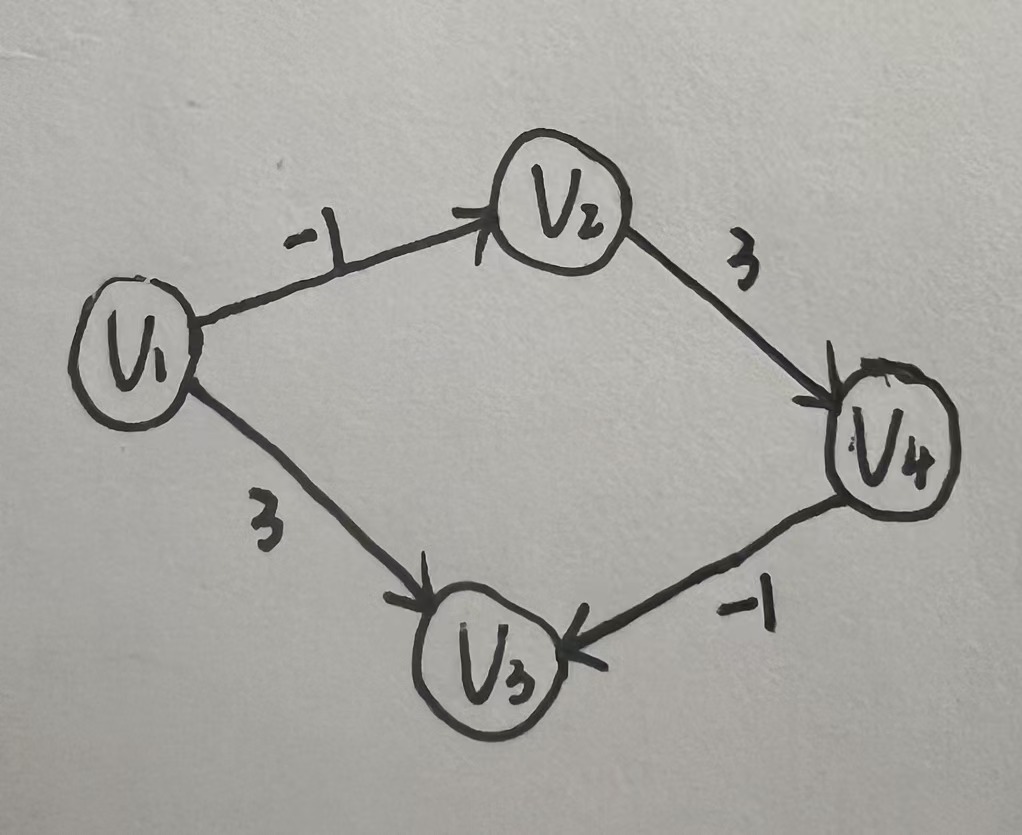 V2
-1
3
V1
V4
3
-1
V3